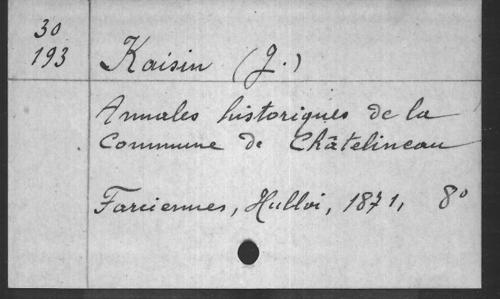 30
193
Kaisin (J.)
Annales historiques de la
Commune de Châtelineau
Farciennes, Hulloi, 1871, 8º